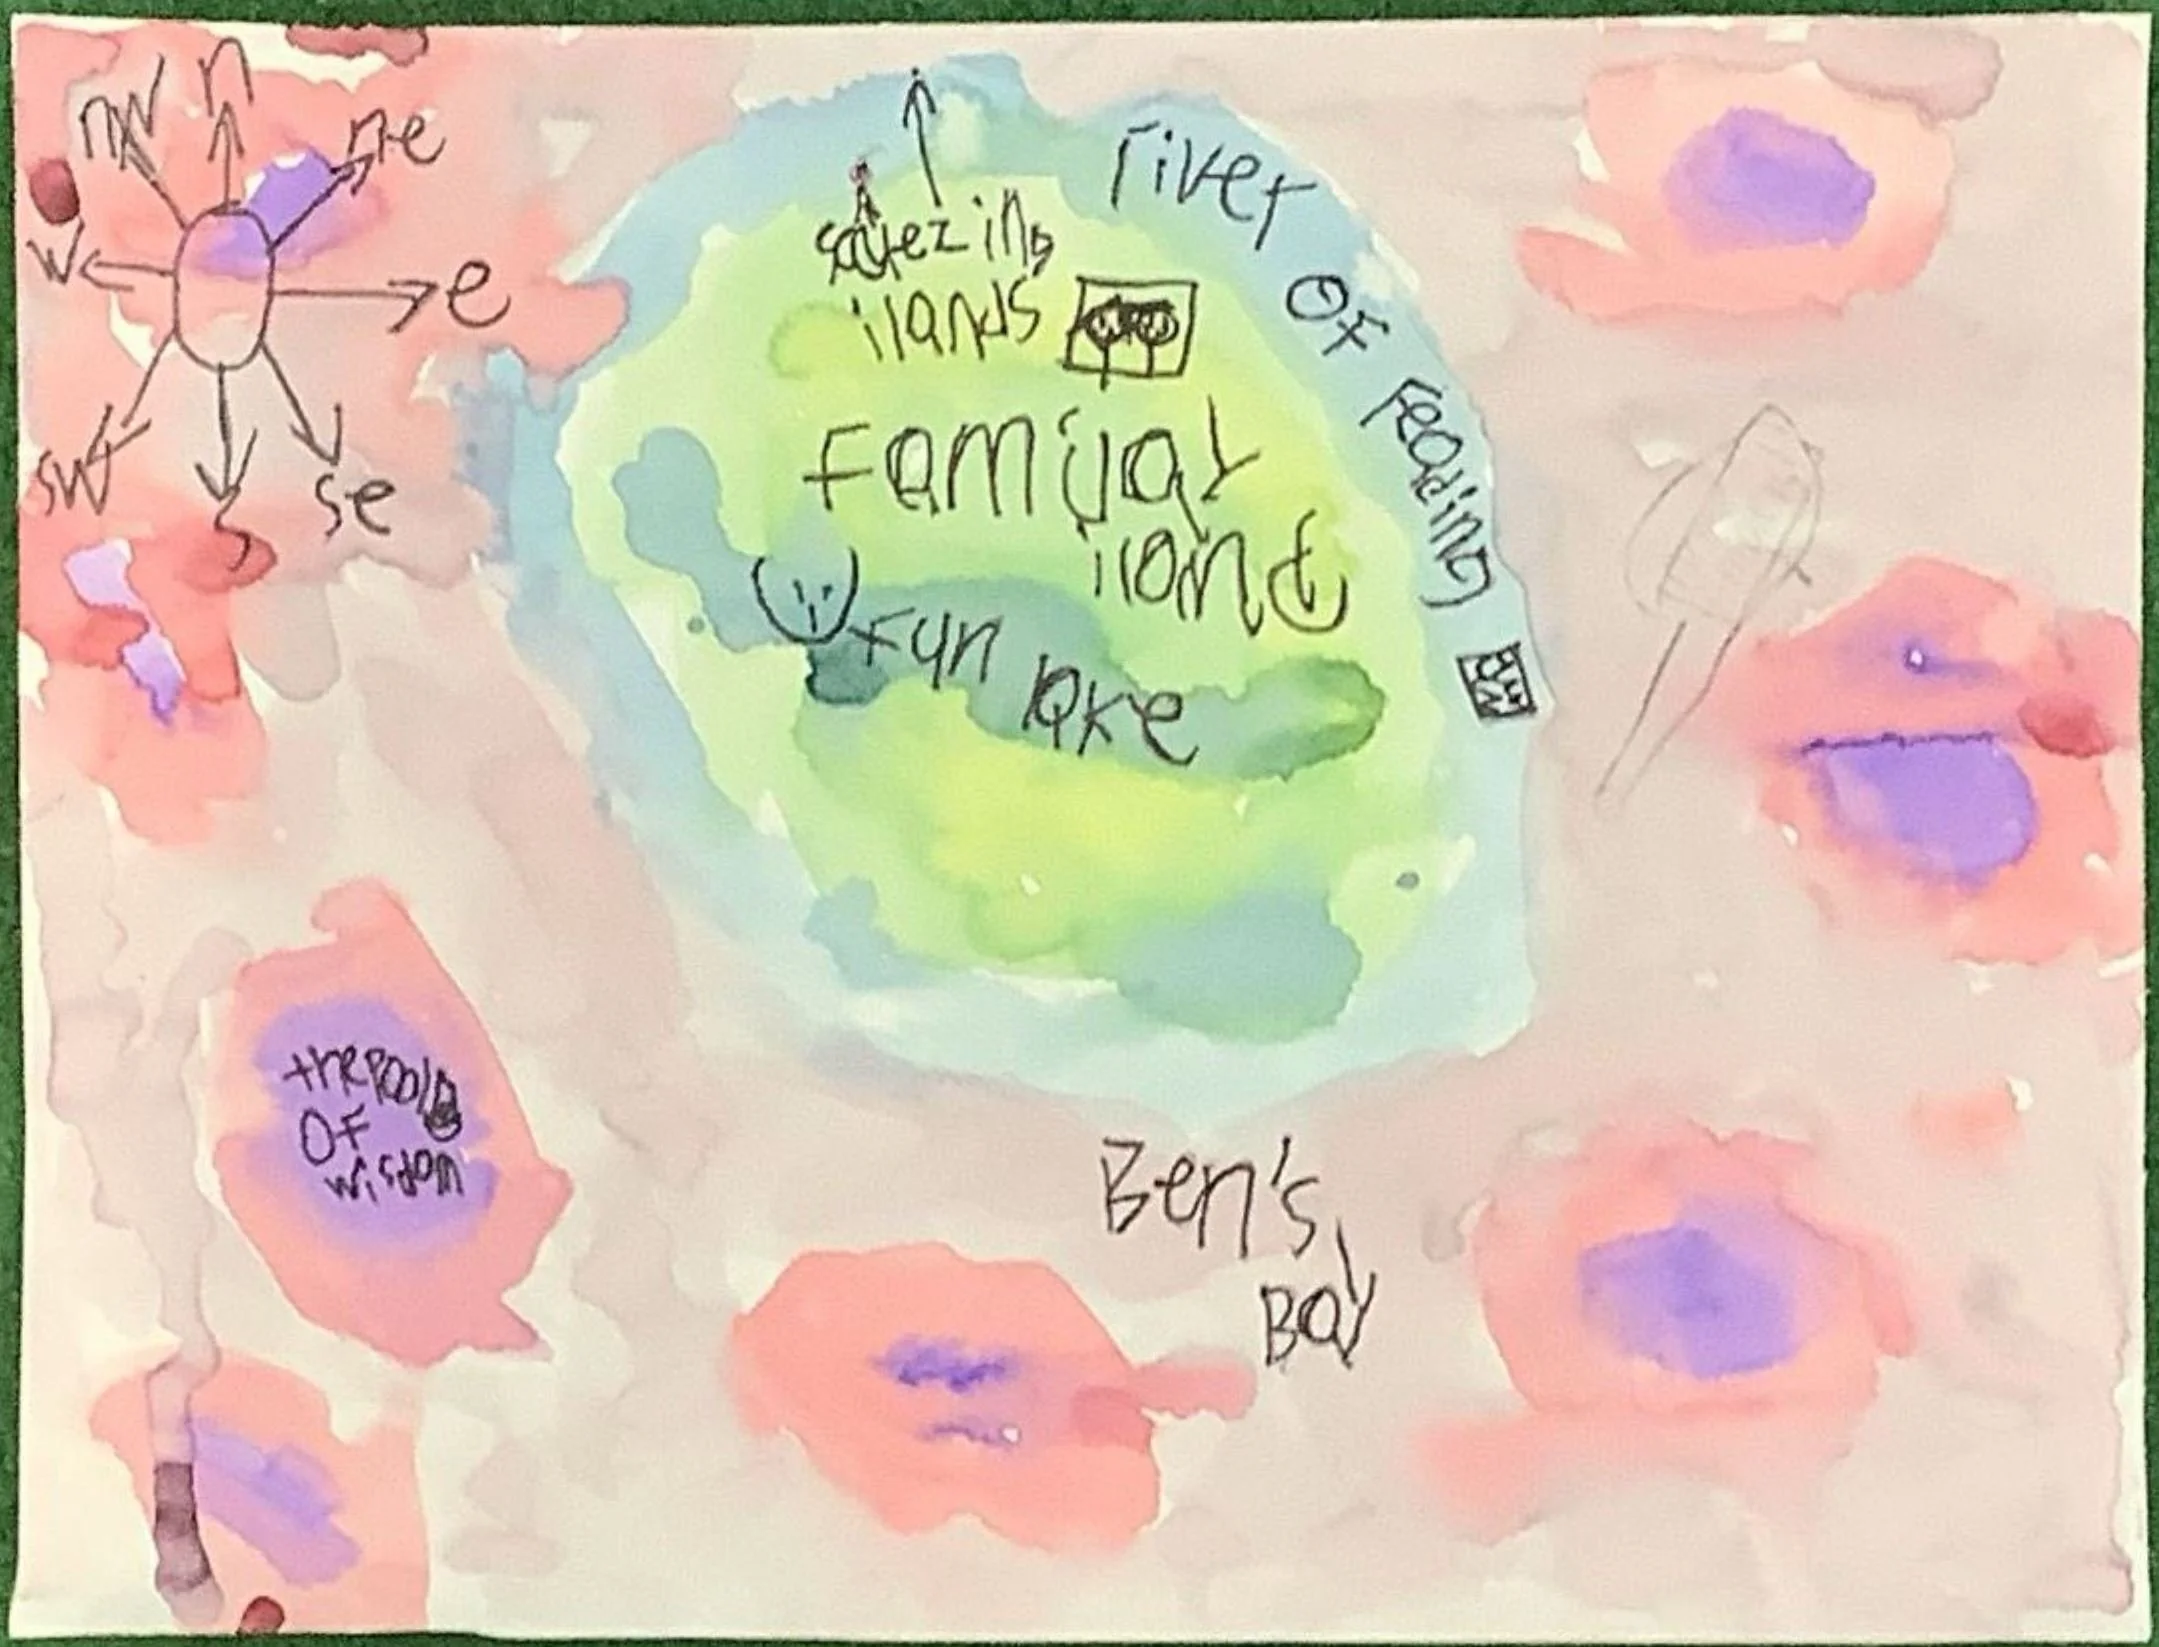 nw n ne
w e
sw s se
river
OF
reading
ilands
iland
Fun
lake
the Pool
OF
wisdom
Ben's
Bay